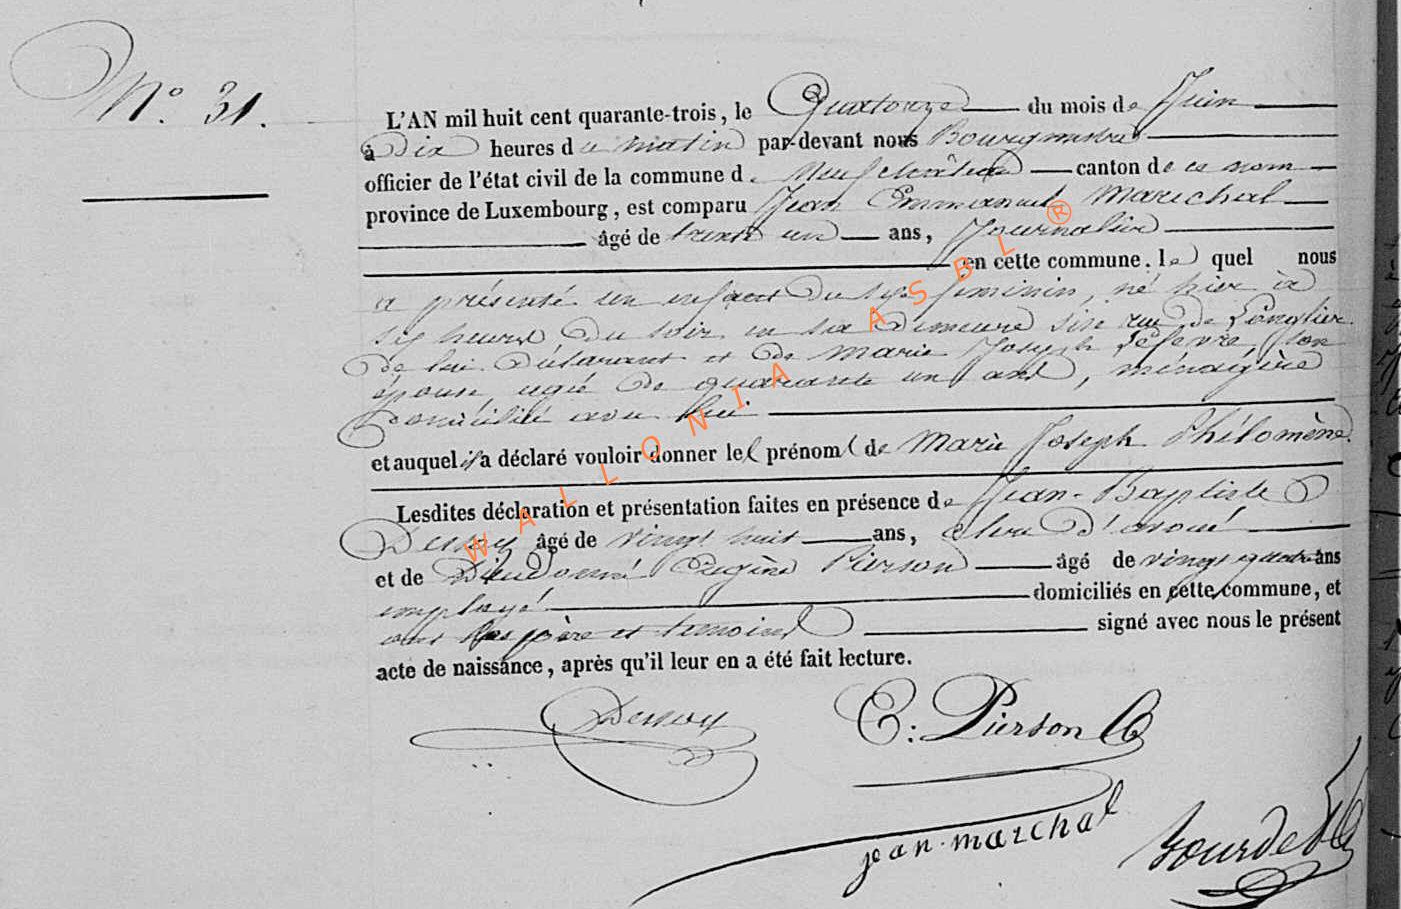 N.° 31.
L'AN mil huit cent quarante-trois, le Quatorze du mois de Juin
à Dix heures du matin par-devant nous Bourgmestre
officier de l'état civil de la commune de Neufchâteau canton de ce nom
province de Luxembourg, est comparu Jean Emmanuel Marechal
âgé de trente un ans, Journalier
en cette commune. le quel nous
a présenté un enfant du sexe feminin, né hier à
six heures du soir en sa demeure sise rue de Longlier
de lui déclarant et de Marie Joseph Lefevre son
épouse agée de quarante un ans, ménagère
domiciliée avec lui
et auquel il a déclaré vouloir donner les prénoms de Marie Joseph Philomène.
Lesdites déclaration et présentation faites en présence de Jean-Baptiste
Dessoy âgé de vingt huit ans, clerc d'avoué
et de Dieudonné Eugène Pierson âgé de vingt quatre ans
employé domiciliés en cette commune, et
ont les père et temoins signé avec nous le présent
acte de naissance, après qu'il leur en a été fait lecture.
Dessoy
E: Pierson
jean marchal
WALLONIA ASBL ®